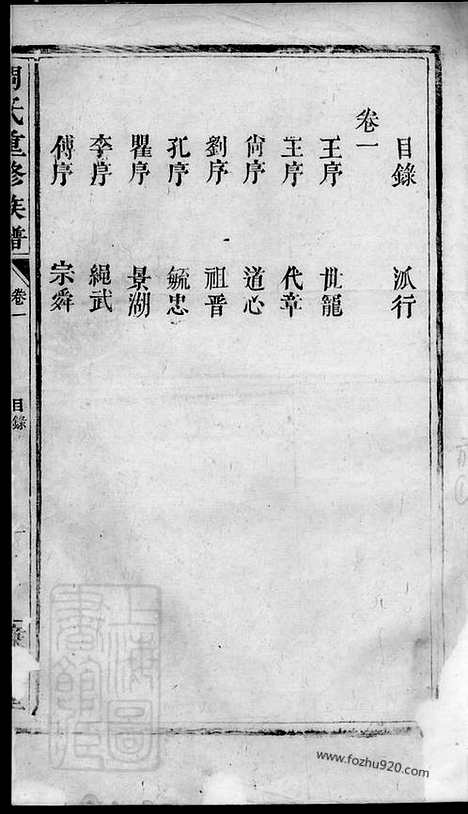 目錄 派行
卷一
王序 世寵
王序 代章
尙序 道心
劉序 祖晋
孔序 毓忠
瞿序 景湖
李序 繩武
傅序 宗舜
周氏重修族譜 卷一 目錄
上海圖書館藏
www.fozhu920.com